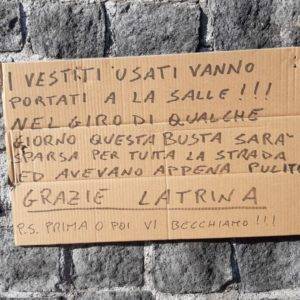 I VESTITI USATI VANNO
PORTATI A LA SALLE!!!
NEL GIRO DI QUALCHE
GIORNO QUESTA BUSTA SARA'
SPARSA PER TUTTA LA STRADA
ED AVEVANO APPENA PULITO
GRAZIE LATRINA
P.S. PRIMA O POI VI BECCHIAMO!!!